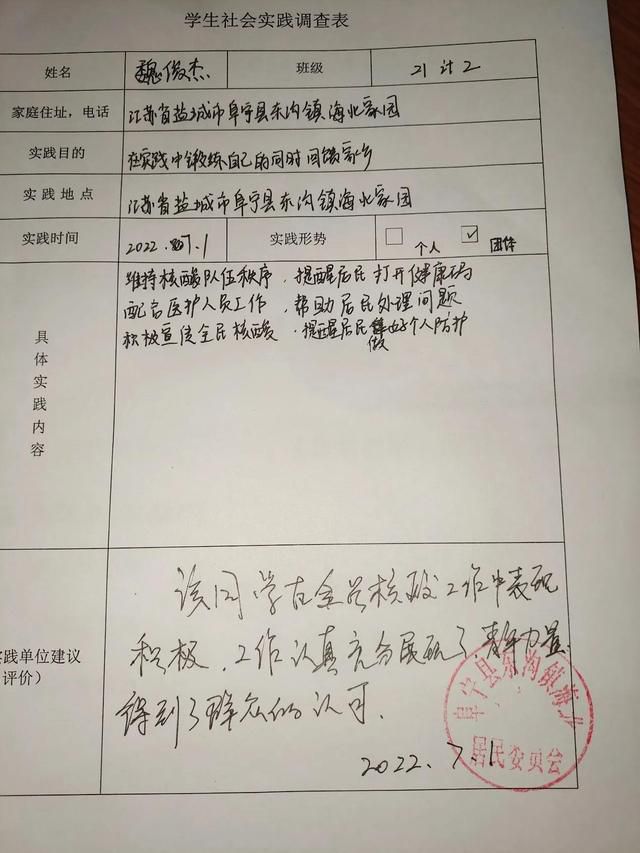 学生社会实践调查表
姓名 魏俊杰 班级 21计2
家庭住址，电话 江苏省盐城市阜宁县东沟镇海北家园
实践目的 在实践中锻炼自己的同时回馈家乡
实践地点 江苏省盐城市阜宁县东沟镇海北家园
实践时间 2022.7.1 实践形势 个人 ☑ 团体
具体实践内容
维持核酸队伍秩序，提醒居民打开健康码
配合医护人员工作，帮助居民处理问题
积极宣传全民核酸，提醒居民做好个人防护
实践单位建议
评价）
该同学在全员核酸工作中表现
积极，工作认真充分展现了青年力量
得到了群众的认可.
2022.7.1
阜宁县东沟镇海北
居民委员会